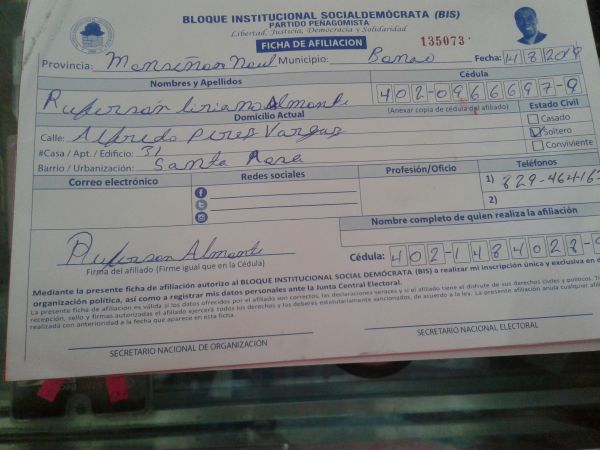 BLOQUE INSTITUCIONAL SOCIALDEMÓCRATA (BIS)
PARTIDO PEÑAGOMISTA
Libertad, Justicia, Democracia y Solidaridad
FICHA DE AFILIACION 135073
Provincia: Monseñor Nouel Municipio: Bonao Fecha:
Nombres y Apellidos Cédula
Ruferson Liriano Almonte 402-0966697-9
Domicilio Actual (Anexar copia de cédula del afiliado) Estado Civil
Calle: Alfredo Peres Vargas Casado
#Casa / Apt. / Edificio: 31 Soltero
Barrio / Urbanización: Santa Rosa Conviviente
Correo electrónico Redes sociales Profesión/Oficio Teléfonos
1) 829-464-163
2)
Nombre completo de quien realiza la afiliación
Ruferson Almonte Cédula: 402-1484028-
Firma del afiliado (Firme igual que en la Cédula)
Mediante la presente ficha de afiliación autorizo al BLOQUE INSTITUCIONAL SOCIAL DEMÓCRATA (BIS) a realizar mi inscripción única y exclusiva en
organización política, así como a registrar mis datos personales ante la Junta Central Electoral.
La presente ficha de afiliación es válida si los datos ofrecidos por el afiliado son correctos, las declaraciones veraces y si el afiliado tiene el disfrute de sus derechos civiles y políticos.
recepción, sello y firmas autorizadas el afiliado ejercerá todos los derechos y los deberes estatutariamente sancionados, de acuerdo a la ley. La presente afiliación anula cualquier
realizada con anterioridad a la fecha que aparece en esta ficha.
SECRETARIO NACIONAL DE ORGANIZACIÓN SECRETARIO NACIONAL ELECTORAL